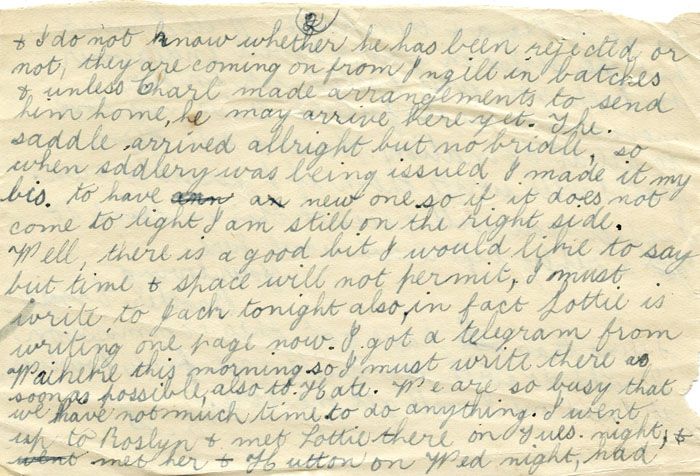 2
& I do not know whether he has been rejected or
not, they are coming on from Ingill in batches
& unless Charl made arrangements to send
him home, he may arrive here yet. The
saddle arrived allright but no bridle, so
when sddlery was being issued I made it my
bis. to have an new one so if it does not
come to light I am still on the right side.
Well, there is a good bit I would like to say
but time & space will not permit, I must
write to Jack tonight also, in fact Lottie is
writing one page now. I got a telegram from
this morning so I must write there as
soon as possible, also to Kate. We are so busy that
we have not much time to do anything. I went
up to Roslyn & met Lottie there on Tues. night, &
went met her & Hutton on Wed night, had